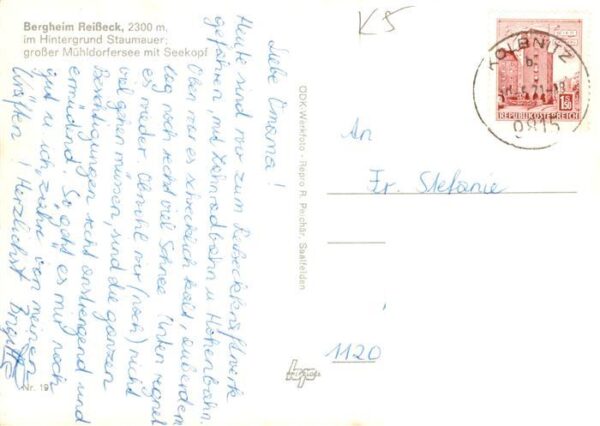 Bergheim Reißeck, 2300 m,
im Hintergrund Staumauer;
großer Mühldorfersee mit Seekopf
K5
TOLBNITZ
b
9815
1.50
REPUBLIK ÖSTERREICH
Liebe Omama!
Heute sind wir zum Reißeckkraftwerk
gefahren mit Zahnradbahn u. Höhenbahn.
Oben war es schrecklich kalt, außerdem
lag noch recht viel Schnee. Unten regnet
es wieder. Obwohl wir (noch) nicht
viel gehen müssen, sind die ganzen
Besichtigungen recht anstrengend und
ermüdend. So geht es mir noch
gut u. ich zehre von meinen
Kräften! Herzlichst Brigitte
ODK-Werkfoto - Repro R. Perchar, Saalfelden
An
Fr. Stefanie
1120
Nr. 19